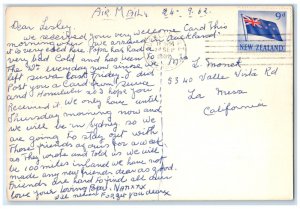 AIR MAIL 24.9.62
Dear Lesley
We received your very welcome Card This
morning when we arrived in Auckland.
it is very cold here Papa has had a
very bad cold and has been in
The Bed every day since we
left Suva last Friday. I did
Post you a Card from Suva
and Honolulu so I hope you
Received it We only have until
Thursday morning now and
we will be in Sydney so we
are going to stay out with
Those friends of ours for a week
as They wrote and Told us we will
be 100 miles inland we have not
made any new friends dear as good
Friends are hard to find all our
love your loving Papa. Nana xx
will never Forget you dear xx
NEW ZEALAND 9d
L Monet
5340 Valle Vista Rd
La Mesa
California